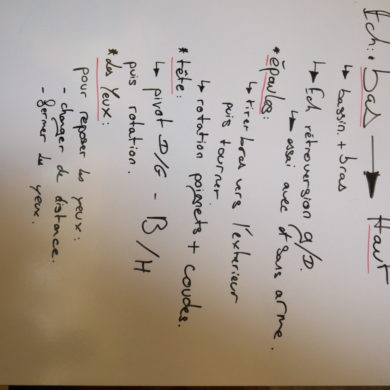 Ech: bas → Haut
↳ bassin + bras
↳ Ech rétroversion g/D.
↳ essai avec et sans arme.
* épaules:
↳ tirer bras vers l'extérieur
puis tourner
↳ rotation poignets + coudes.
* tête:
↳ pivot D/G - B/H
puis rotation.
* les yeux:
pour reposer les yeux:
- changer de distance.
- fermer les yeux.